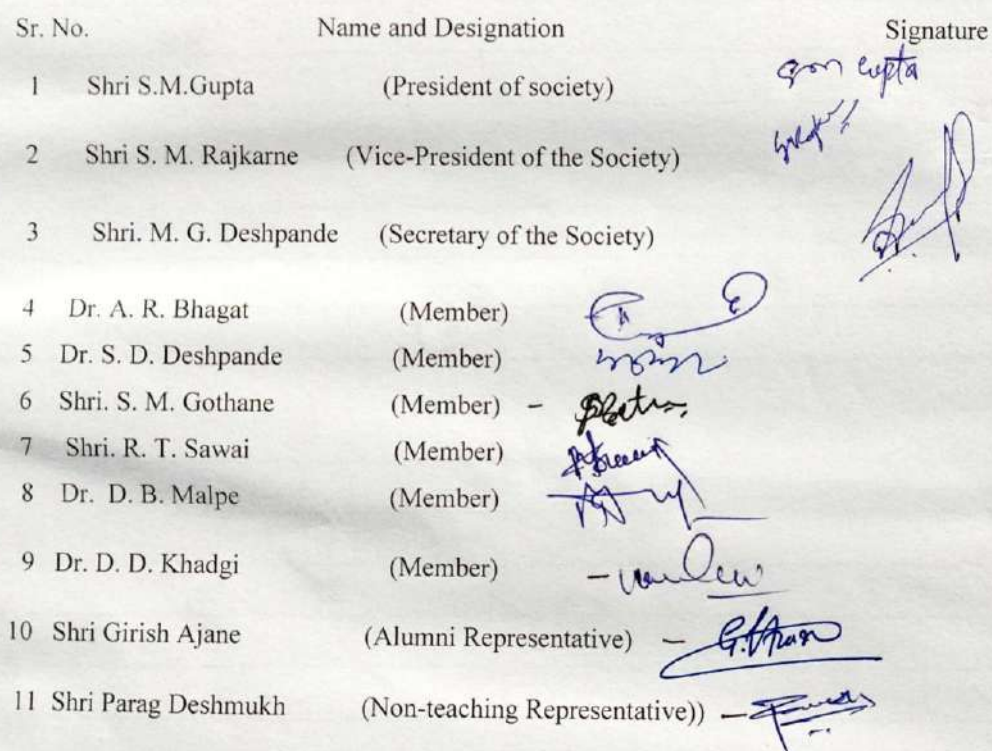 Sr. No. Name and Designation Signature
1 Shri S.M.Gupta (President of society) Gupta
2 Shri S. M. Rajkarne (Vice-President of the Society)
3 Shri. M. G. Deshpande (Secretary of the Society)
4 Dr. A. R. Bhagat (Member)
5 Dr. S. D. Deshpande (Member)
6 Shri. S. M. Gothane (Member) –
7 Shri. R. T. Sawai (Member)
8 Dr. D. B. Malpe (Member)
9 Dr. D. D. Khadgi (Member) –
10 Shri Girish Ajane (Alumni Representative) –
11 Shri Parag Deshmukh (Non-teaching Representative)) –